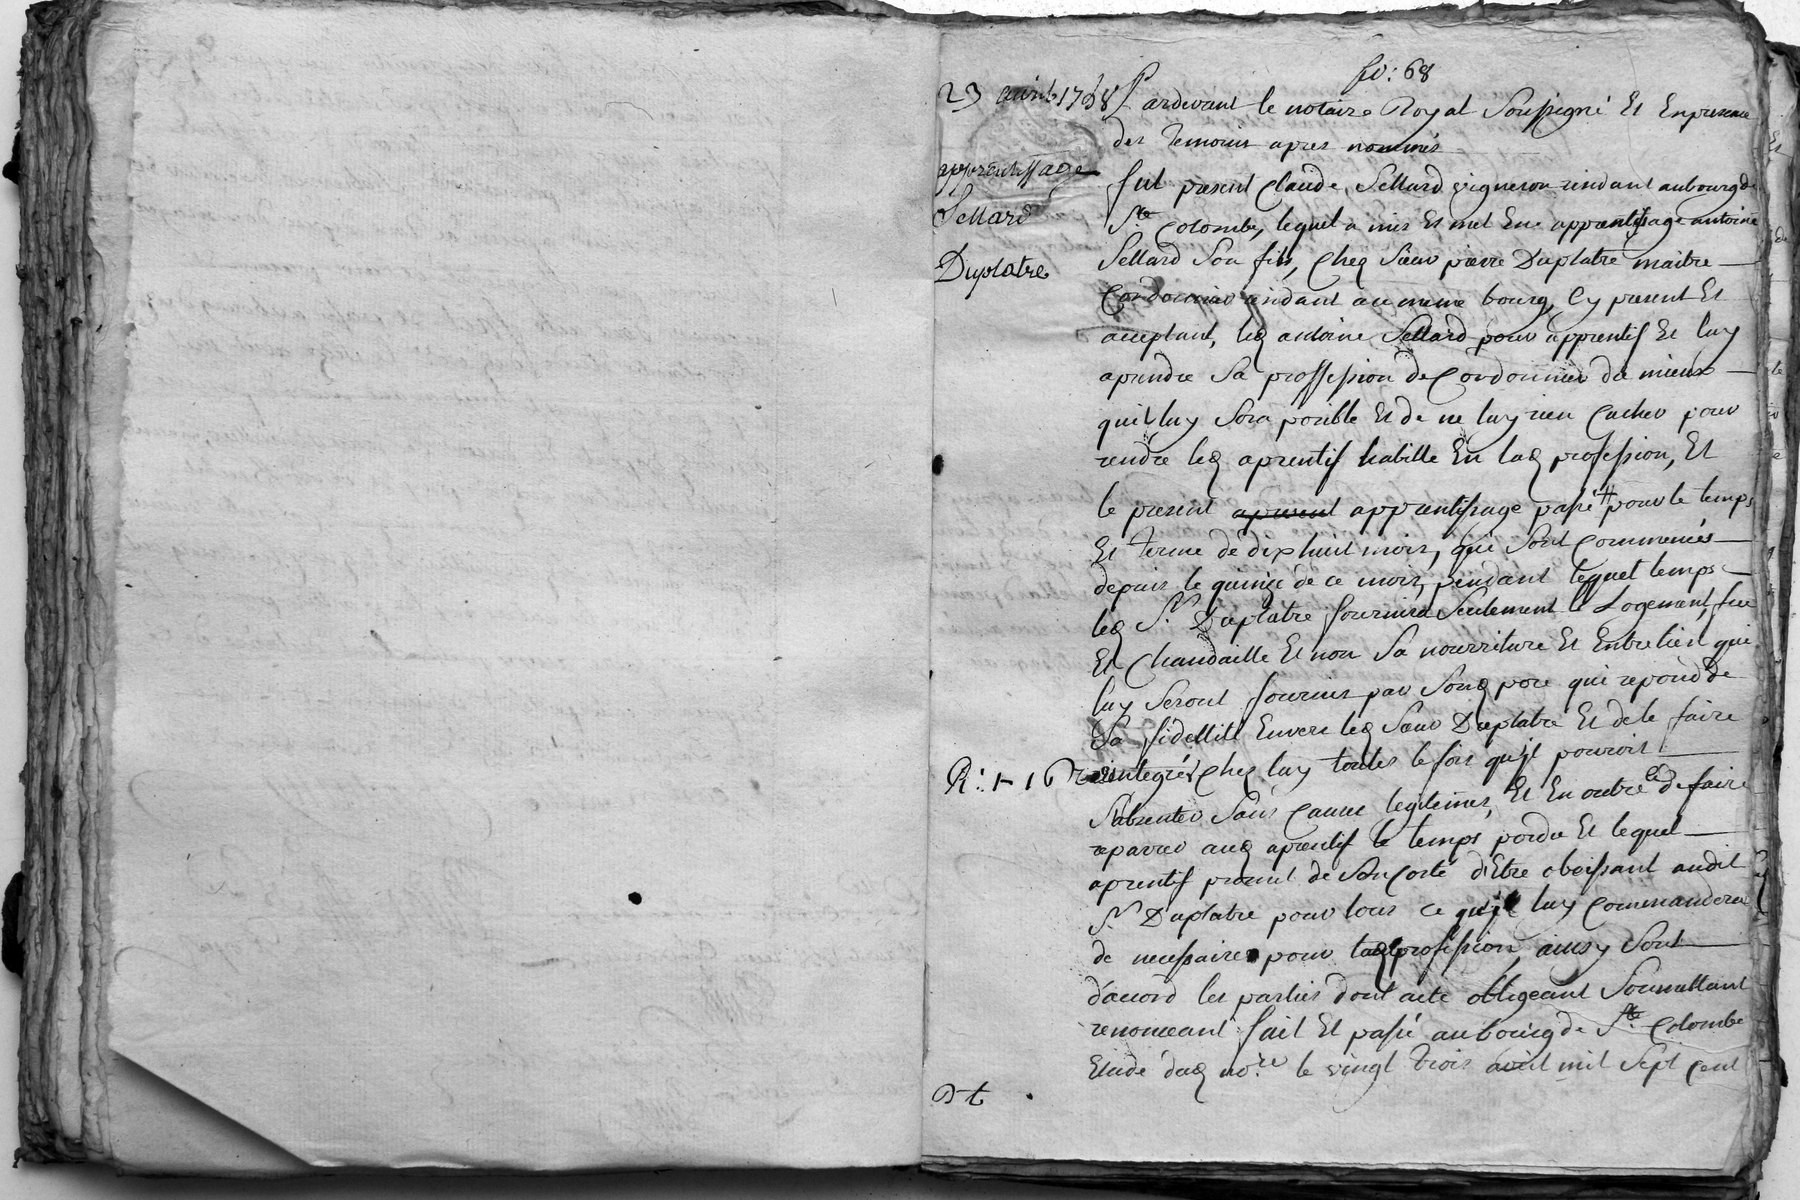 fo: 68
23 avril 1768
apprentissage
Sellard
Duplatre
Pardevant le notaire Royal soussigné Et Enpresence
des temoins apres nommés
fut present Claude Sellard vigneron residant aubourg de
Ste Colombe, lequel a mis Et met En apprentissage antoine
Sellard son fils, chez Sieur pierre Duplatre maitre
Cordonnier residant au meme bourg, Cy present Et
acceptant, led antoine Sellard pour apprentif Et luy
aprendre sa proffession de Cordonnier du mieux
quil luy sera posible Et de ne luy rien cacher pour
rendre led aprentif habille En lad profession, Et
le present apprentissage passé # pour le temps
Et terme de dix huit mois, qui sont commencés
depuis le quinze de ce mois, pendant lequel temps
led Sr Duplatre fournira seulement le Logement, feu
Et Chandaille Et non sa nourriture Et Entretien qui
luy seront fournis par sond pere qui repond de
sa fidellité Envers led sieur Duplatre Et de le faire
R: 1-16
reintegrer chez luy toutes le fois qu'il pouroit
s'absenter sans cause legitimes, Et En outre de faire
reparer aud aprentif le temps perdu Et lequel
aprentif promet de son costé d'Etre obeissant audit
Sr Duplatre pour tous ce qu'il luy commandera
de necessaire pour lad profession, ainsy sont
d'accord les parties dont acte obligeant soumettant
renonceant fait Et passé au bourg de Ste Colombe
Etude dud nore le vingt trois avril mil sept cent